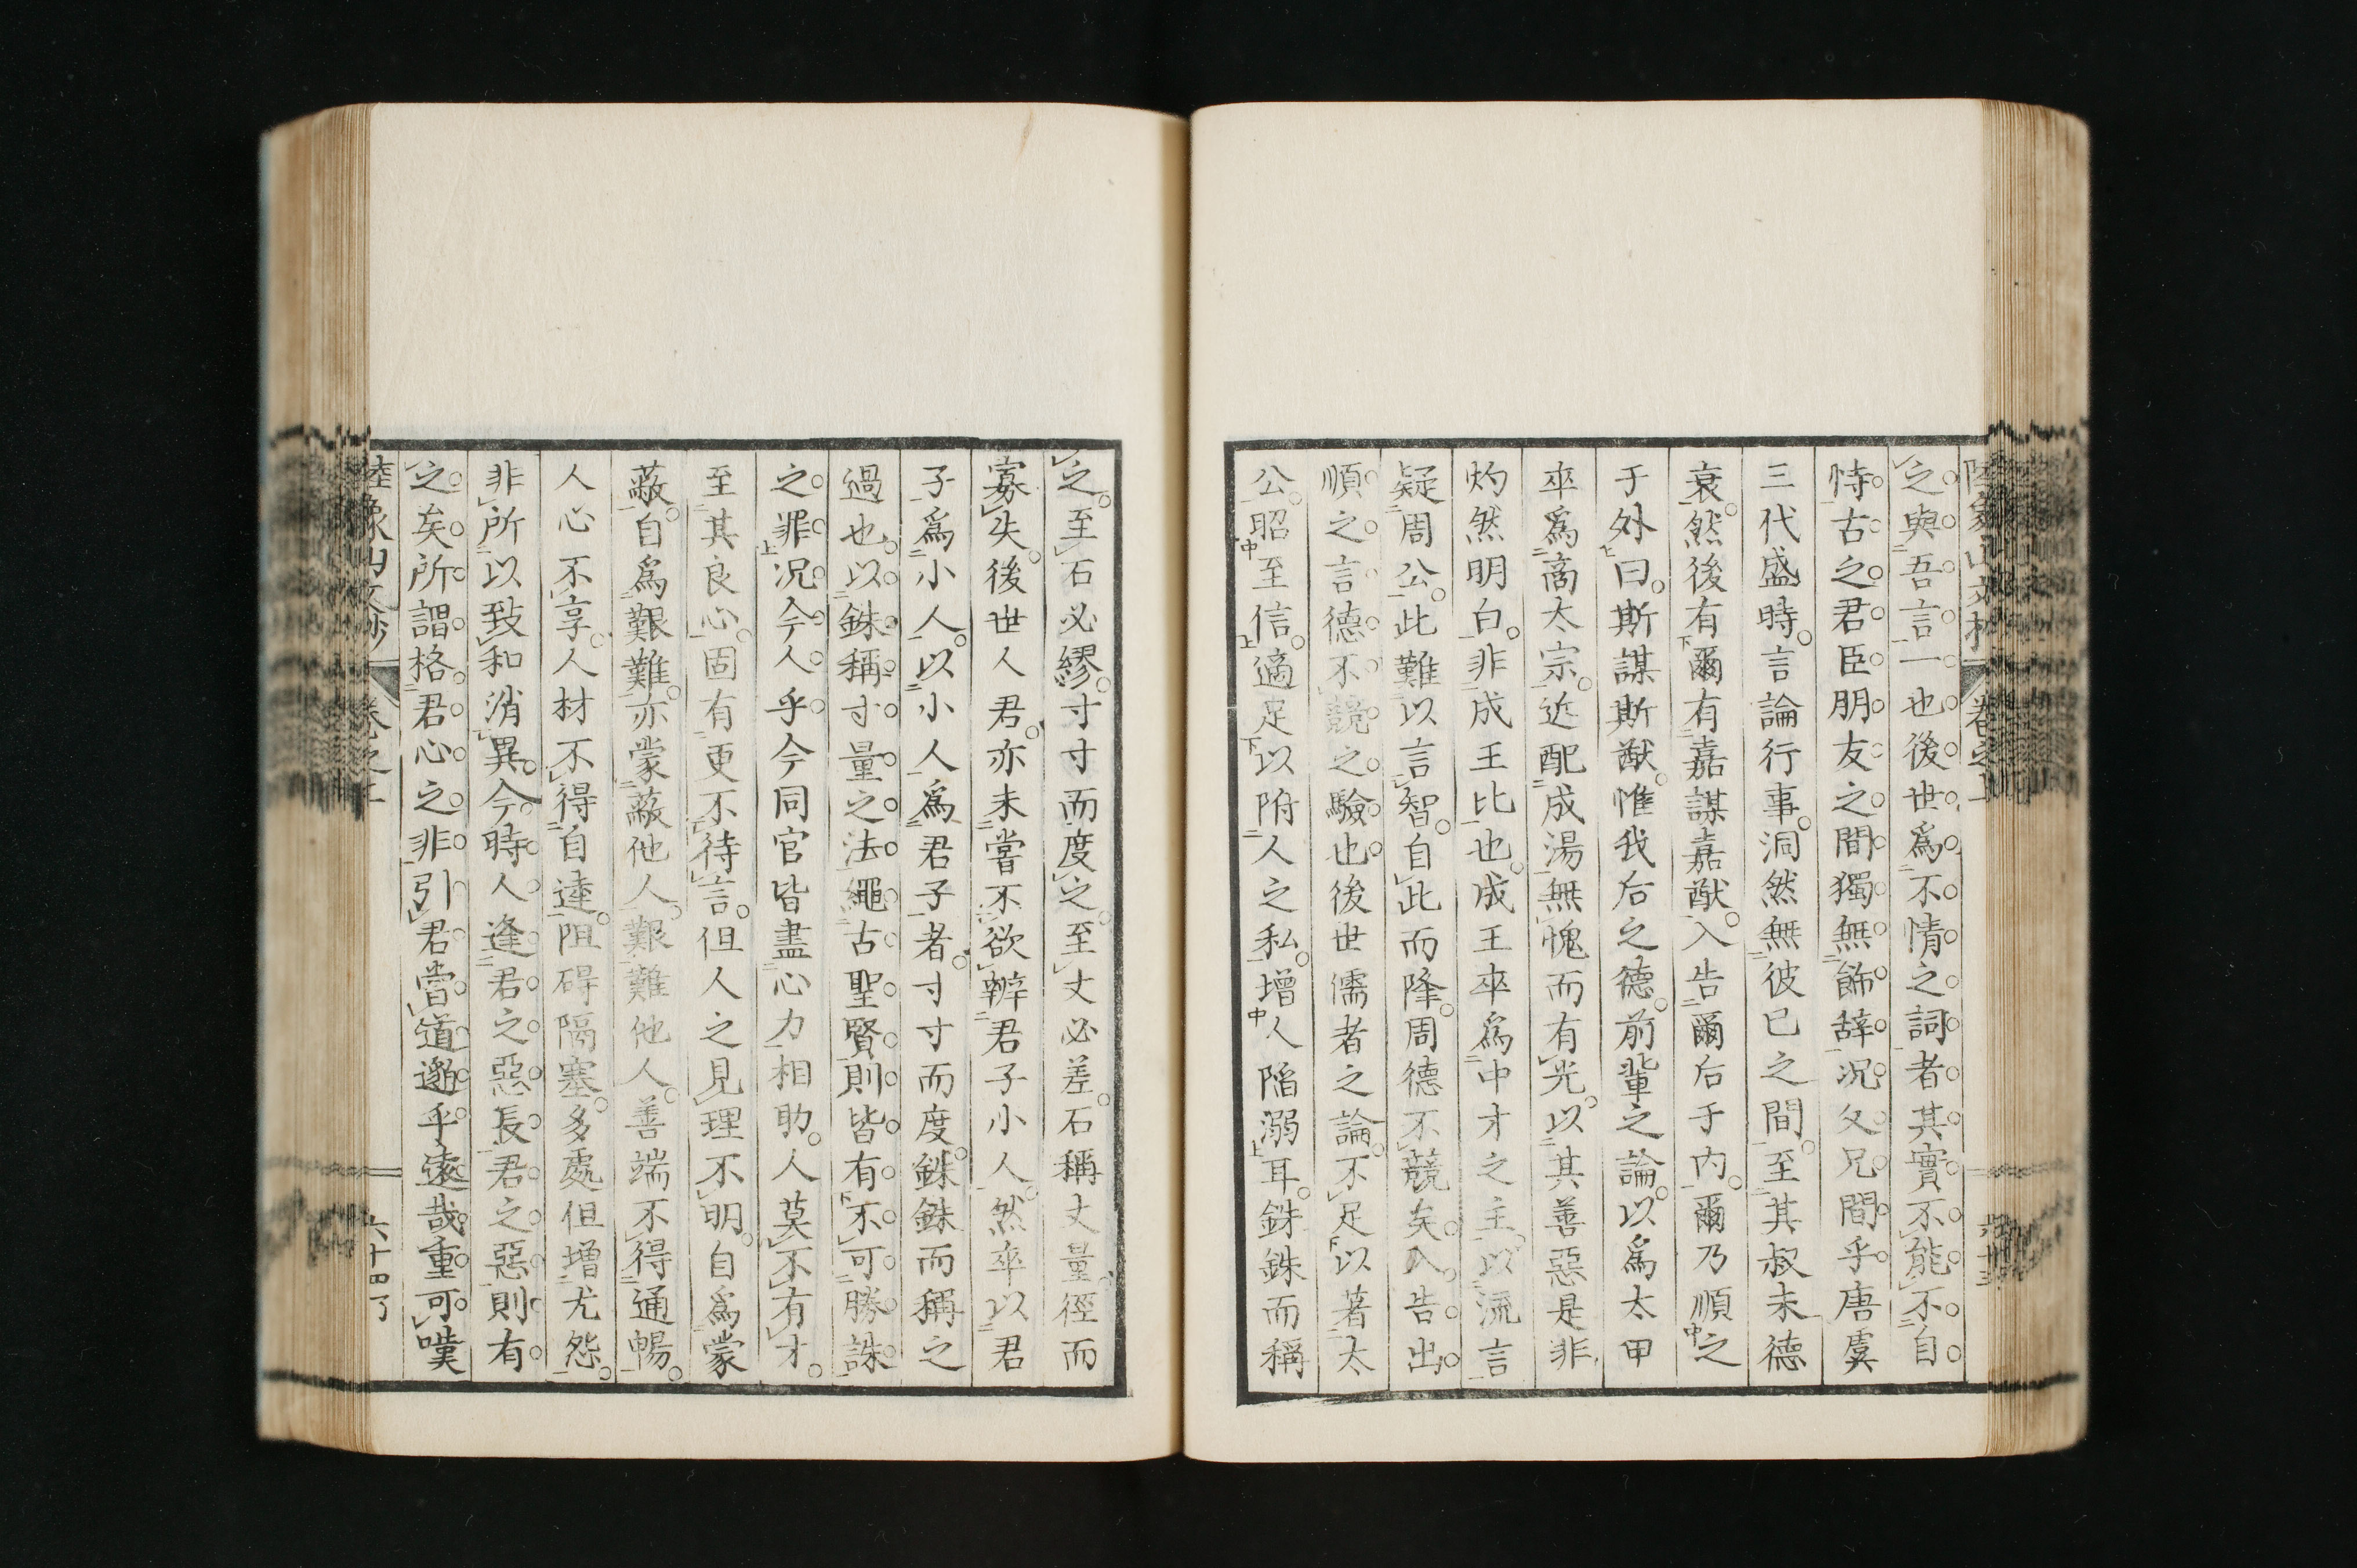 之與吾言一也後世爲不情之詞者其實不能不自
恃古之君臣朋友之間獨無飾辭況父兄間乎唐虞
三代盛時言論行事洞然無彼已之間至其叔末德
衰然後有爾有嘉謀嘉猷入告爾后于内爾乃順之
于外曰斯謀斯猷惟我后之德前輩之論以爲太甲
卒爲商太宗近配成湯無愧而有光以其善惡是非
灼然明白非成王比也成王卒爲中才之主以流言
疑周公此難以言智自此而降周德不競矣入告出
順之言德不競之驗也後世儒者之論不足以著太
公昭至信適足以附人之私增人陷溺耳銖銖而稱
之至石必繆寸寸而度之至丈必差石稱丈量徑而
寡失後世人君亦未嘗不欲辨君子小人然卒以君
子爲小人以小人爲君子者寸寸而度銖銖而稱之
過也以銖稱寸量之法繩古聖賢則皆有不可勝誅
之罪況今人乎今同官皆盡心力相助人莫不有才
至其良心固有更不待言但人之見理不明自爲蒙
蔽自爲艱難亦蒙蔽他人艱難他人善端不得通暢
人心不享人材不得自達阻碍隔塞多處但增尤怨
非所以致和消異今時人逢君之惡長君之惡則有
之矣所謂格君心之非引君當道邈乎遠哉重可嘆
六十四丁